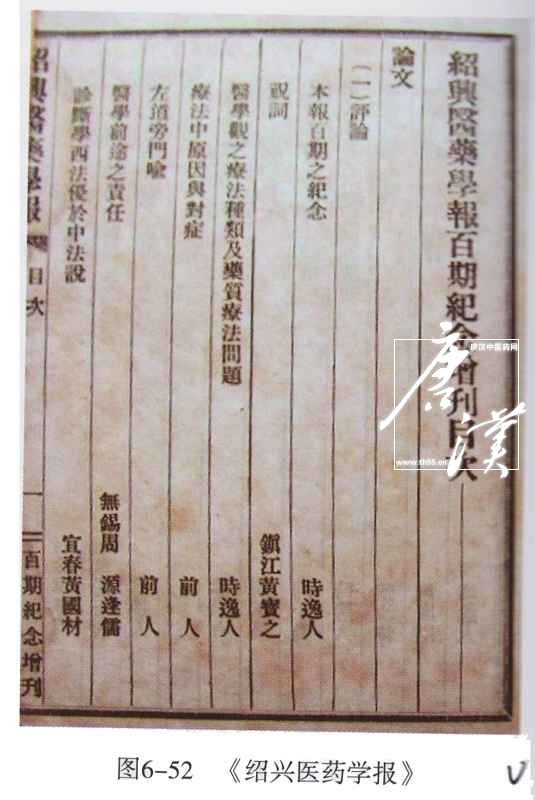 紹興醫藥學報百期紀念增刊目次
論文
（一）評論
本報百期之紀念 時逸人
祝詞 鎮江黃寶之
醫學觀之療法種類及藥質療法問題 時逸人
療法中原因與對症 前人
左道旁門喻 前人
醫學前途之責任 無錫周 源逢儒
診斷學西法優於中法說 宜春黃國材
紹興醫藥學報 目次 一 百期紀念增刊
唐汉
唐汉中医药网
www.th55.cn
图6-52 《绍兴医药学报》